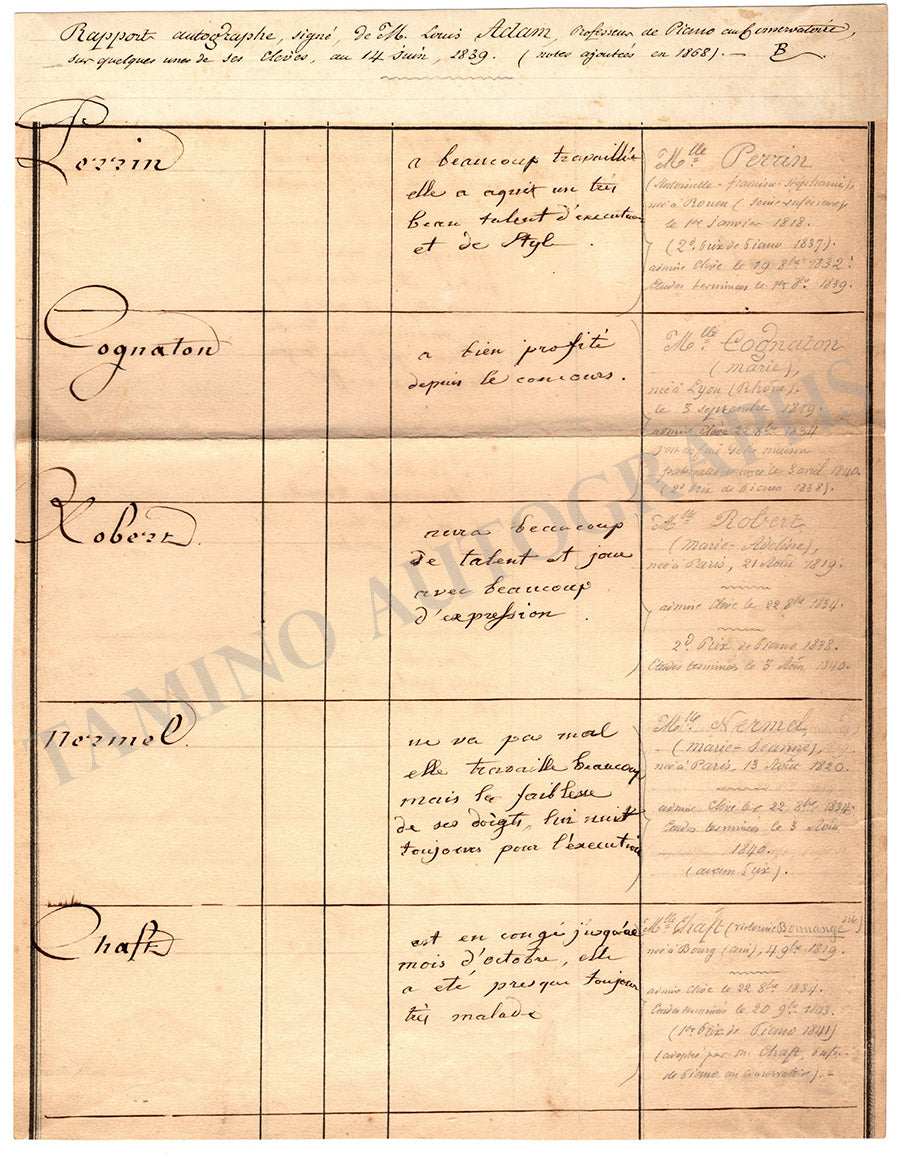 Rapport autographe, signé, de M. Louis Adam, Professeur de Piano au Conservatoire,
sur quelques unes de ses Elèves, au 14 juin, 1839. (notes ajoutées en 1868). — B
Perrin
a beaucoup travaillé
elle a aquit un très
beau talent d'execution
et de Style
Mlle Perrin
née à Rouen (Seine-inférieure),
le 1er Janvier 1818.
(2d. prix de Piano 1837).
admise Elève le 19 8bre 1832.
Etudes terminées le 1er 1839.
Cognaton
a bien profité
depuis le concours.
Mlle Cognaton
(Marie),
née à Lyon (Rhône).
le 3 septembre 1819.
admise Elève 22 8bre 1834
le 3 avril 1840.
(2d. Prix de Piano 1838).
Robert.
aura beaucoup
de talent et joue
avec beaucoup
d'expression
Mlle Robert
(Marie-Adeline),
née à Paris, 21 Août 1819.
admise Elève le 22 8bre 1834.
2d. Prix de Piano 1838.
Etudes terminées le 3 Août 1840.
Nermel.
ne va pa mal
elle travaille beaucoup
mais la faiblesse
de ses doigts, lui nuit
toujours pour l'execution
Mlle Nermel
(Marie-Jeanne),
née à Paris, 13 Août 1820.
admise Elève le 22 8bre 1834.
Etudes terminées le 3 Août
1840.
(aucun Prix).
Chaft
est en congé jusqu'au
mois d'octobre, elle
a été presque toujour
très malade
Mlle Chaft (victorine Bonnange dite)
née à Bourg (ain), 4 9bre 1819.
admise Elève le 22 8bre 1834.
Etudes terminées le 20 9bre
(1er Prix de Piano 1841)
(adoptée par M. Chaft,
de Piano au conservatoire). -
TAMINO AUTOGRAPHS